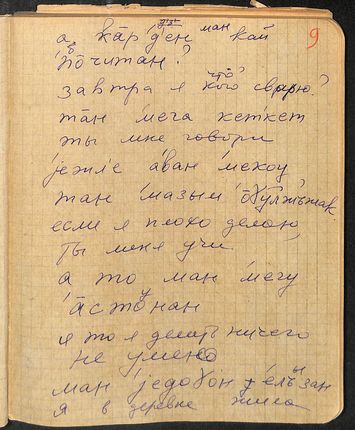 9
а кāрд'ен ман кай
по̄читан?
завтра я кого сварю?
что
тāн мега кеткет
ты мне говори
jежл'е аван мекоу
тан мазым
если я плохо делаю,
ты меня учи.
а то ман мегу
āстонан
а то я делать ничего
не умею
ман jедоɣон
я в деревне жила